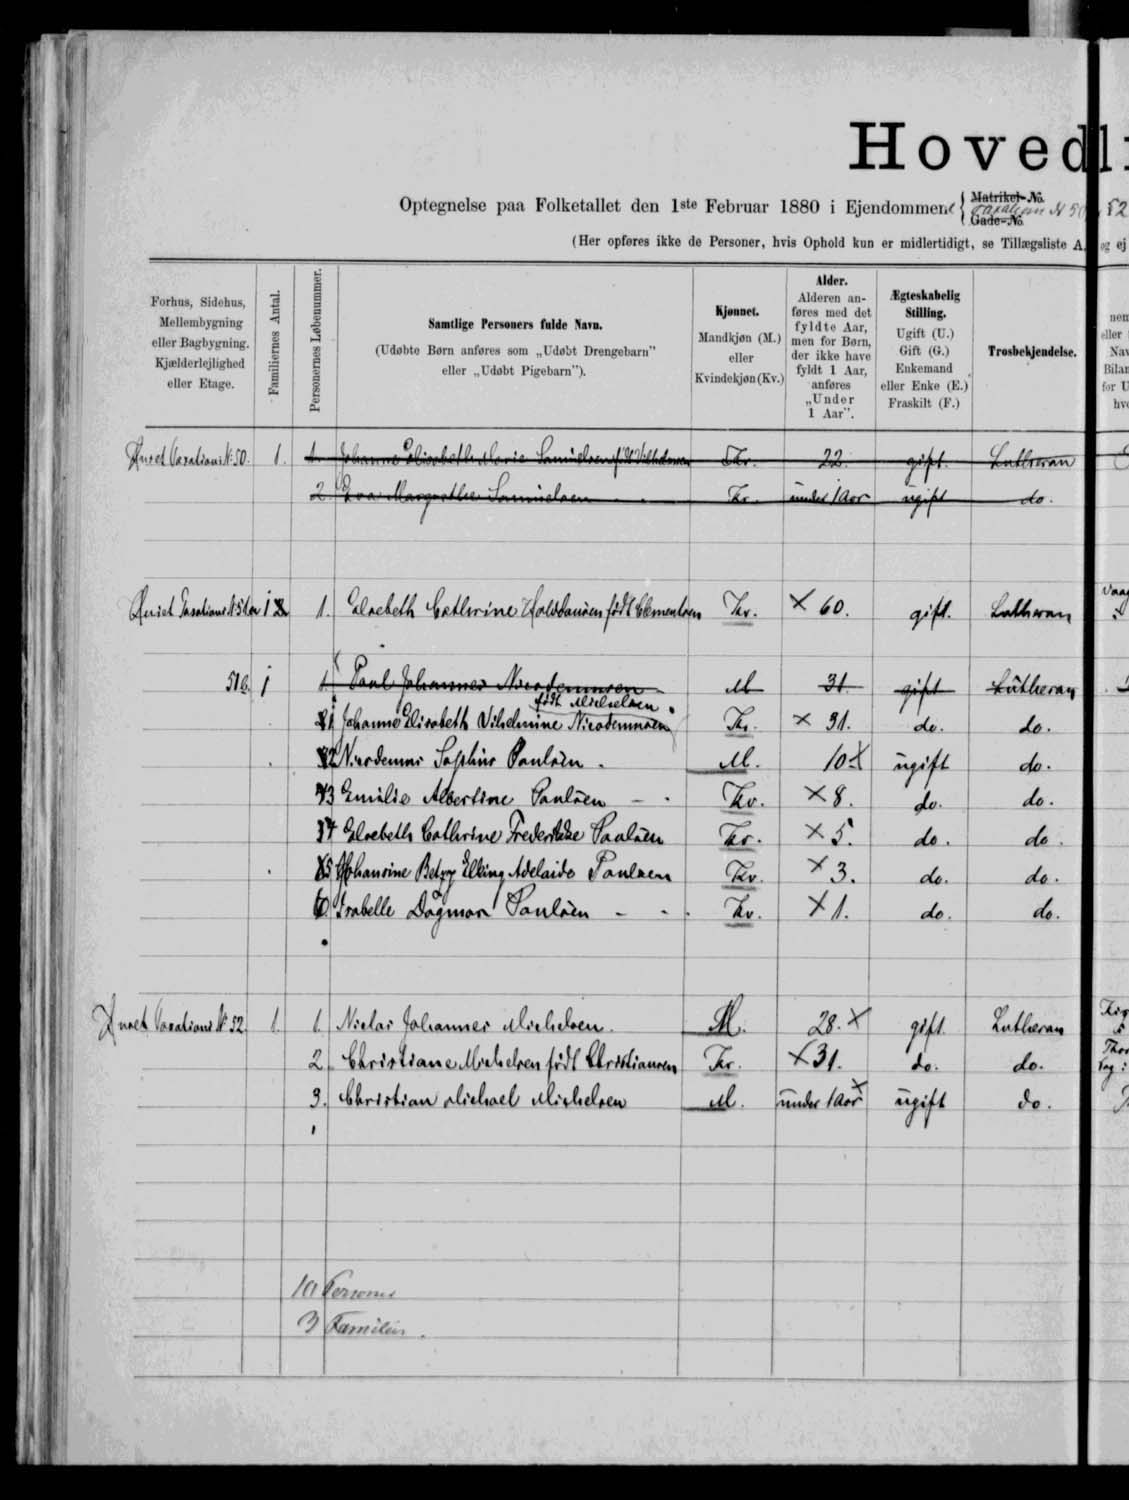 Hovedli
Optegnelse paa Folketallet den 1ste Februar 1880 i Ejendommene { Matrikel-No. Taxations N 50 52
Gade-No.
(Her opføres ikke de Personer, hvis Ophold kun er midlertidigt, se Tillægsliste A. og ej
Forhus, Sidehus, Mellembygning eller Bagbygning. Kjælderlejlighed eller Etage.
Familiernes Antal.
Personernes Løbenummer.
Samtlige Personers fulde Navn.
(Udøbte Børn anføres som „Udøbt Drengebarn"
eller „Udøbt Pigebarn").
Kjønnet.
Mandkjøn (M.)
eller
Kvindekjøn (Kv.)
Alder.
Alderen an-
føres med det
fyldte Aar,
men for Børn,
der ikke have
fyldt 1 Aar,
anføres
„Under
1 Aar".
Ægteskabelig
Stilling.
Ugift (U.)
Gift (G.)
Enkemand
eller Enke (E.)
Fraskilt (F.)
Trosbekjendelse.
Huset Taxations N 50. 1. 1. Johanne Elisabeth Marie Samuelsen født Vilhelmsen Kv. 22. gift. Lutheran
2 Eva Margrethe Samuelsen Kv. under 1 Aar ugift do.
Huset Taxations N 51a 1 1. Elsebeth Cathrine født Clementsen Kv. × 60. gift. Lutheran
51b. 1 1. Paul Johannes Nicodemusen M 31. gift Lutheran
født Michelsen
1 Johanne Elisabeth Vilhelmine Nicodemusen Kv. × 31. do. do.
2 Nicodemus Sophus Paulsen. M. 10 × ugift do.
3 Emilie Albertine Paulsen Kv. × 8. do. do.
4 Elsebeth Cathrine Frederikke Paulsen Kv. × 5. do. do.
5 Johansine Betzy Elling Adelaide Paulsen Kv. × 3. do. do.
6 Isabelle Dagmar Paulsen Kv. × 1. do. do.
Huset Taxations N 52. 1. 1. Niclas Johannes Michelsen. M. 28. × gift. Lutheran
2. Christiane Michelsen født Christiansen Kv. × 31. do. do.
3. Christian Michael Michelsen M. under 1 Aar × ugift do.
10 Personer
3 Familier.